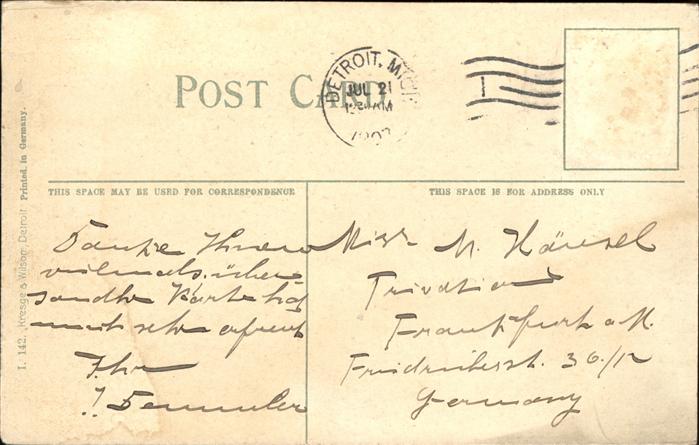 POST CARD
DETROIT, MICH.
JUL 21
12 30 AM
1907
THIS SPACE MAY BE USED FOR CORRESPONDENCE
THIS SPACE IS FOR ADDRESS ONLY
I. 142. Kresge & Wilson, Detroit Printed in Germany.
Danke Ihnen
vielmals, über
sandte Karte hat
mich sehr erfreut
Ihr
Miss M. Hänsel
Frankfurt a M.
Friedrichstr. 36/IV
Germany